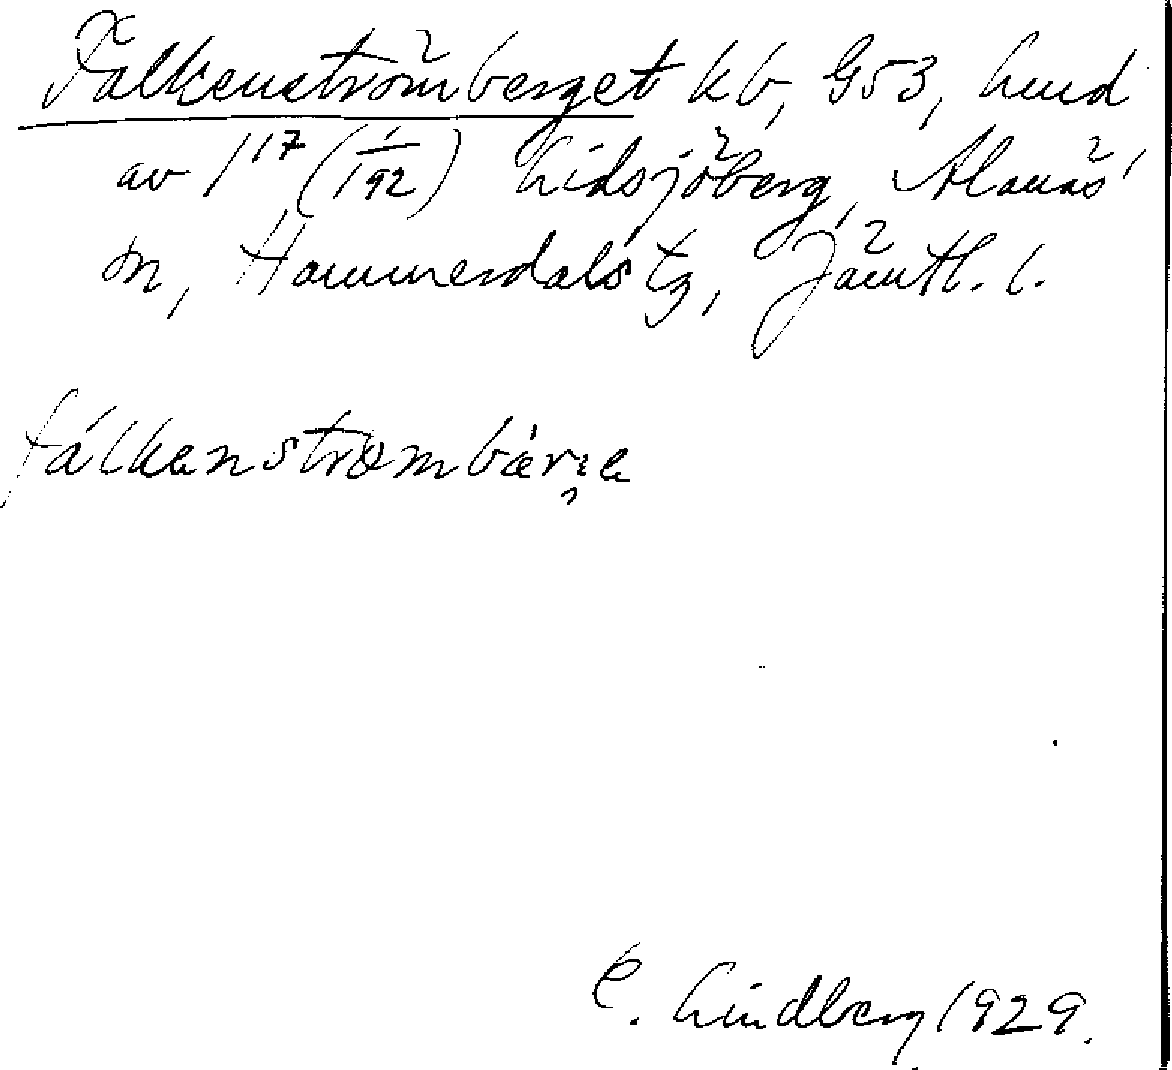 Falkenströmberget kb, G53, hmd
av 1¹⁷ (1/192) Lidsjöberg, Alanäs
sn, Hammerdals tg, Jämtl. l.
fálkenstrømbærje
E. Lindberg 1929.